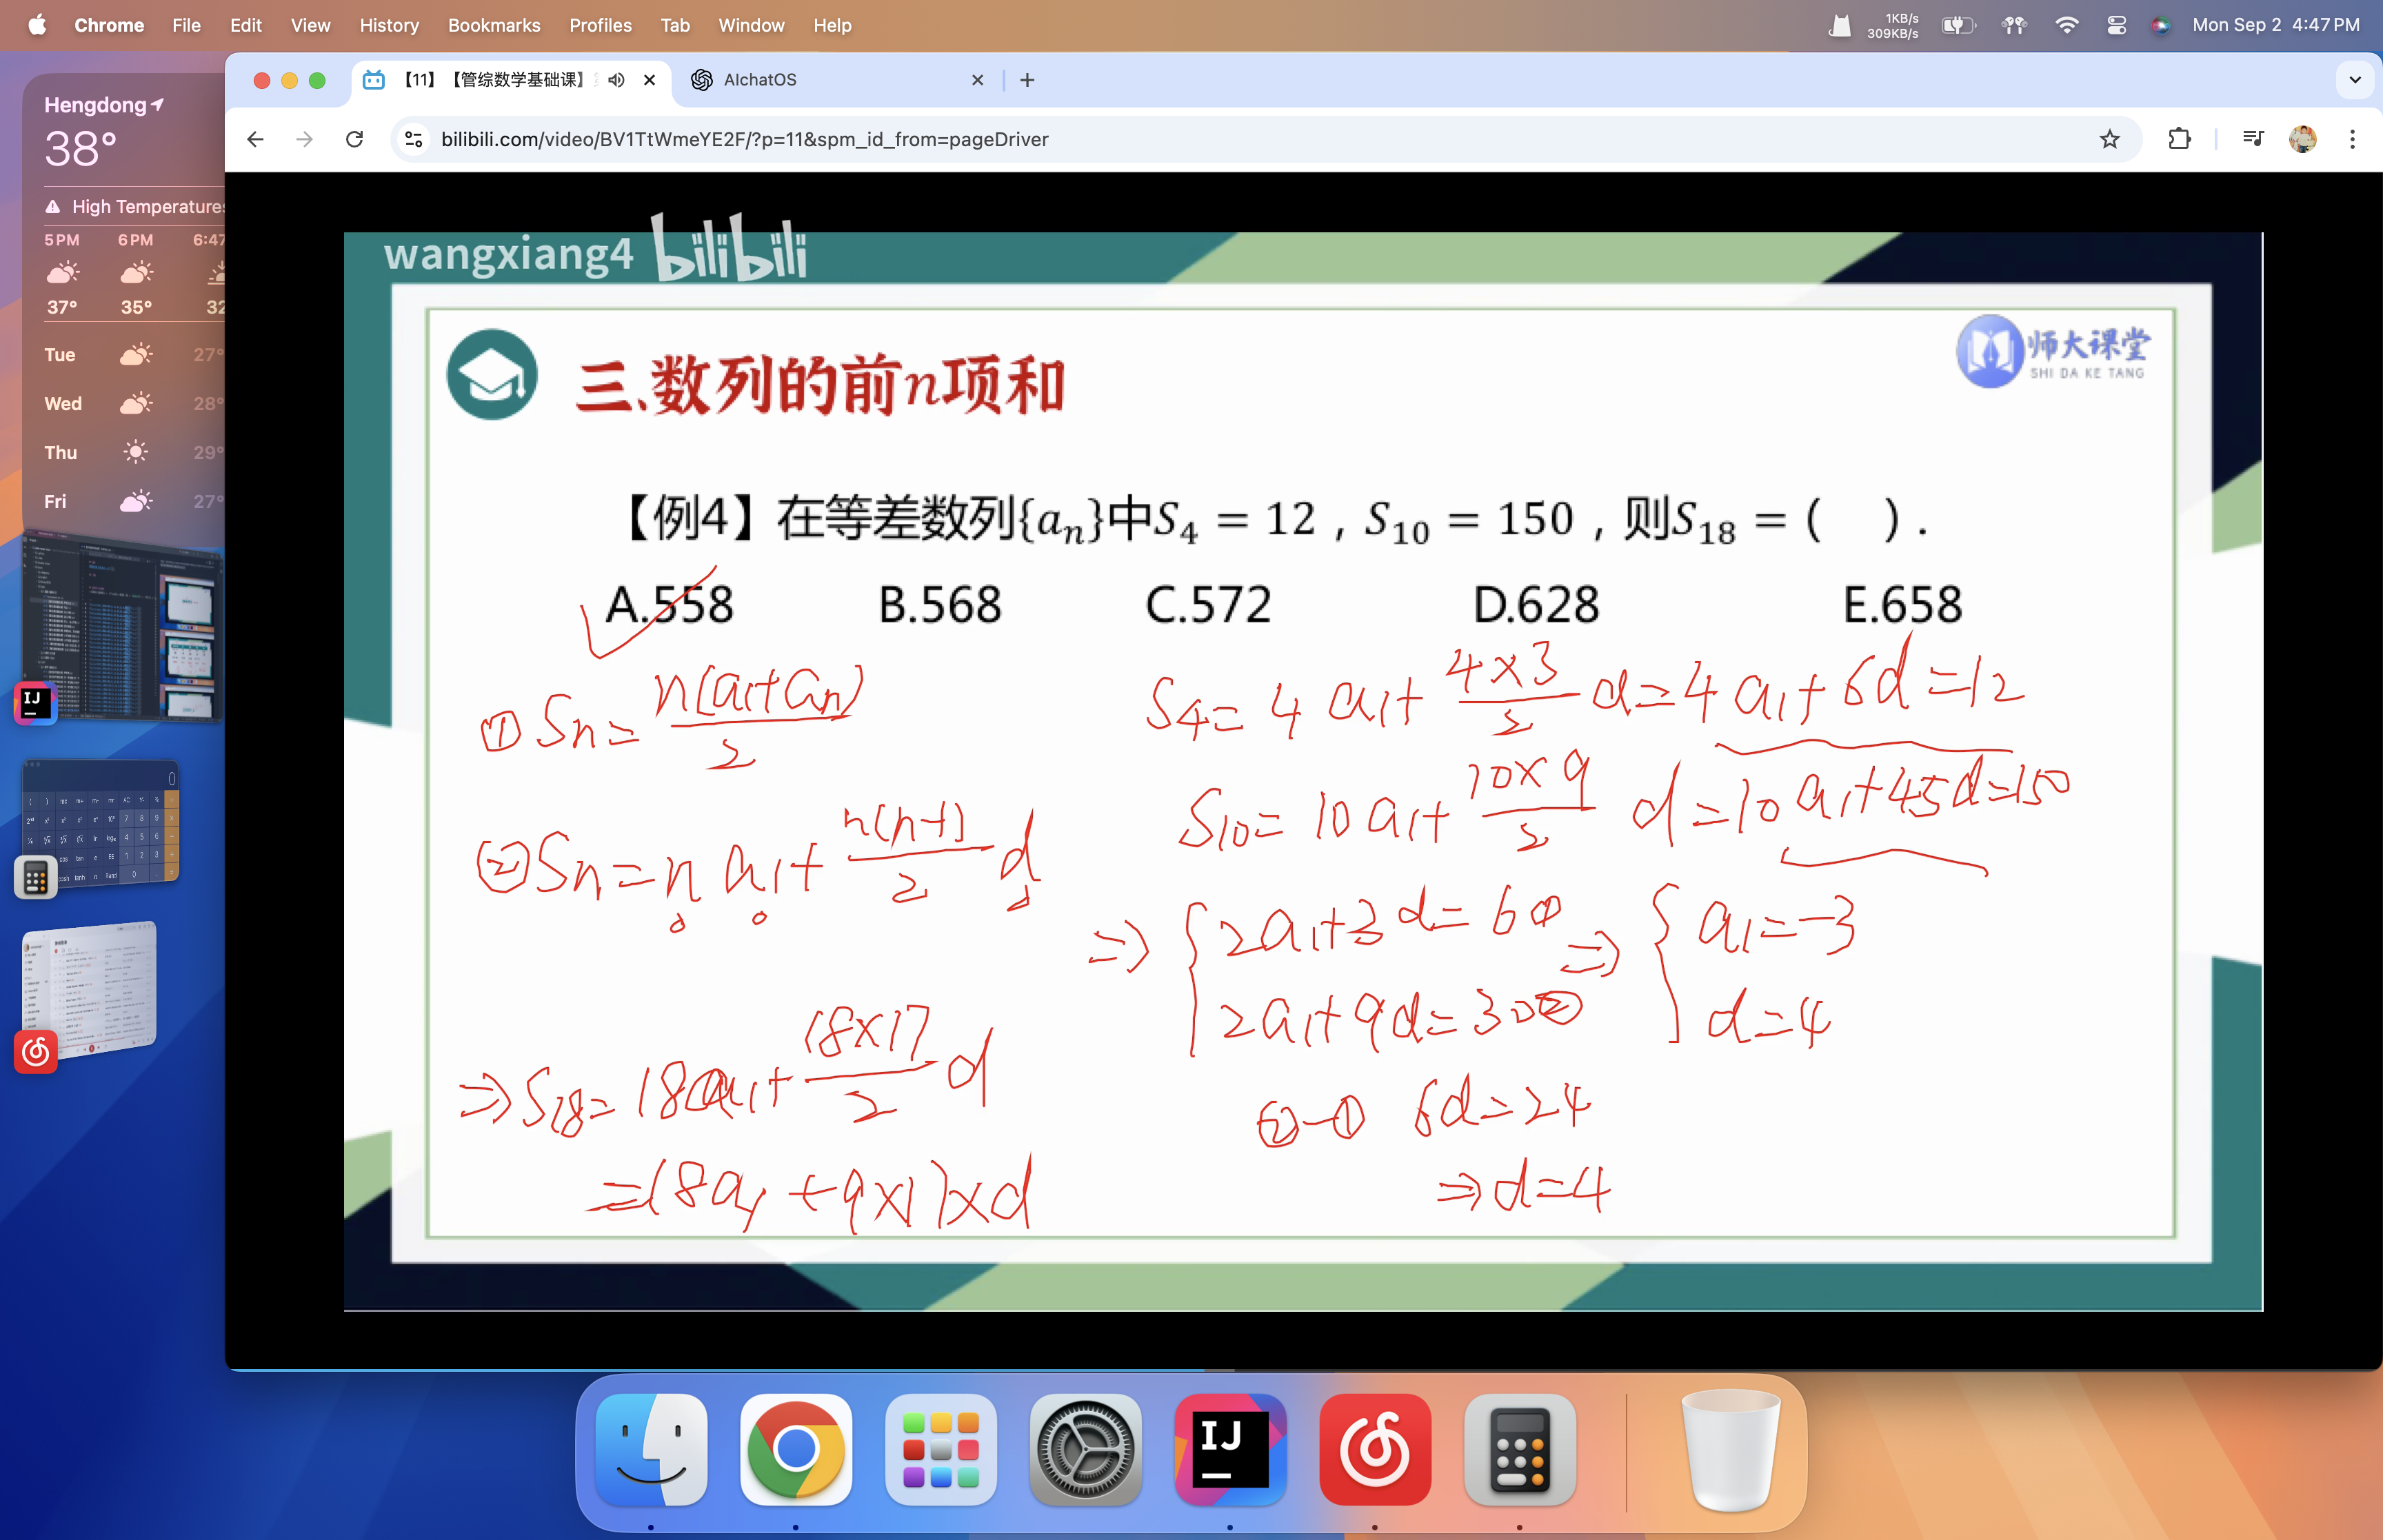 Chrome File Edit View History Bookmarks Profiles Tab Window Help
1KB/s
309KB/s
Mon Sep 2 4:47 PM
Hengdong
38°
High Temperatures
5 PM 6 PM 6:47
37° 35° 32
Tue 27°
Wed 28°
Thu 29°
Fri 27°
【11】【管综数学基础课】
AIchatOS
bilibili.com/video/BV1TtWmeYE2F/?p=11&spm_id_from=pageDriver
wangxiang4 bilibili
师大课堂
SHI DA KE TANG
三.数列的前n项和
【例4】在等差数列{aₙ}中S₄ = 12，S₁₀ = 150，则S₁₈ = (　).
A.558 B.568 C.572 D.628 E.658
① Sn = n(a₁+an)/2
② Sn = n a₁ + n(n-1)/2 d
S₄ = 4a₁ + 4×3/2 d = 4a₁+6d = 12
S₁₀ = 10a₁ + 10×9/2 d = 10a₁+45d = 150
⇒ { 2a₁+3d = 6 ① ⇒ { a₁ = -3
2a₁+9d = 30 ② d = 4
②-① 6d = 24
⇒ d = 4
⇒ S₁₈ = 18a₁ + 18×17/2 d
= 18a₁ + 9×17×d
IJ
IJ